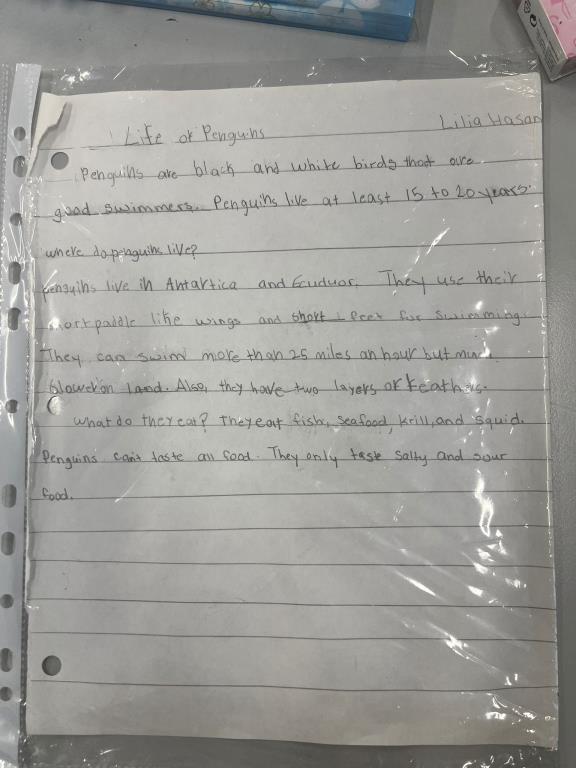 Life of Penguins
Lilia Hasan
Penguins are black and white birds that are
good swimmers. Penguins live at least 15 to 20 years.
where do penguins live?
Penguins live in Antartica and Ecuduor. They use their
short paddle like wings and short feet for swimming.
They can swim more than 25 miles an hour but much
slower on land. Also, they have two layers of feathers.
what do they eat? They eat fish, seafood, krill, and squid.
Penguins can't taste all food. They only taste salty and sour
food.